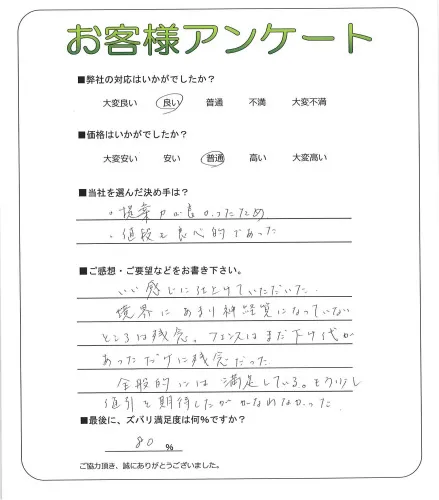 お客様アンケート
■弊社の対応はいかがでしたか？
大変良い 良い 普通 不満 大変不満
■価格はいかがでしたか？
大変安い 安い 普通 高い 大変高い
■当社を選んだ決め手は？
・提案力が良かったため
・値段も良心的であった
■ご感想・ご要望などをお書き下さい。
いい感じに仕上げていただいた.
境界にあまり神経質になっていない
ところは残念。フェンスはまだ下げ代が
あっただけに残念だった.
全般的には満足している。もう少し
値引を期待したがかなわなかった.
■最後に、ズバリ満足度は何％ですか？
80 ％
ご協力頂き、誠にありがとうございました。